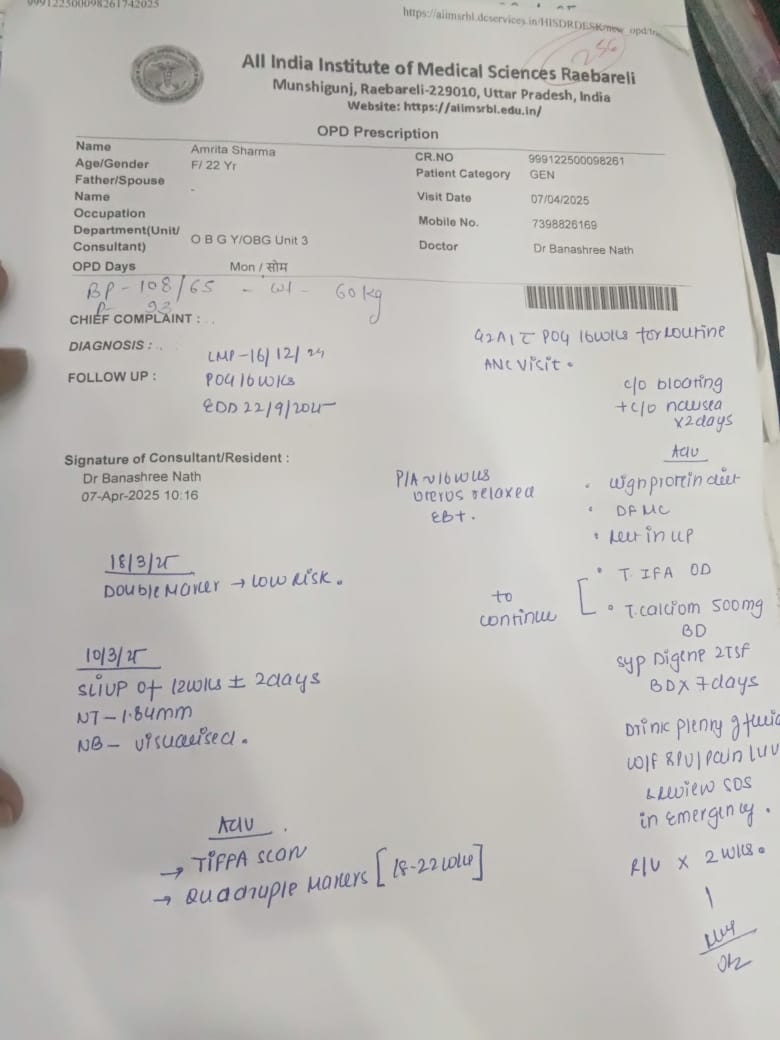 999122500098261742025
https://aiimsrbl.dcservices.in/HISDRDESK/new_opd/tra
256
All India Institute of Medical Sciences Raebareli
Munshigunj, Raebareli-229010, Uttar Pradesh, India
Website: https://aiimsrbl.edu.in/
OPD Prescription
Name Amrita Sharma CR.NO 999122500098261
Age/Gender F/ 22 Yr Patient Category GEN
Father/Spouse Name - Visit Date 07/04/2025
Occupation Mobile No. 7398826169
Department(Unit/Consultant) O B G Y/OBG Unit 3 Doctor Dr Banashree Nath
OPD Days Mon / सोम
BP - 108/65 - wt - 60kg
P- 93
CHIEF COMPLAINT : . .
DIAGNOSIS : . .
FOLLOW UP :
LMP -16/12/24
POG 16 WKS
EDD 22/9/2025
G2A1 c POG 16WKS for routine
ANC visit .
c/o bloating
+ c/o nausea
x2days
Signature of Consultant/Resident :
Dr Banashree Nath
07-Apr-2025 10:16
P/A ~ 16 WKS
uterus relaxed
EB+.
Adv
High protein diet
DFMC
T. IFA OD
to
continue
T. calciom 500mg
BD
syp Digene 2TSF
BD X 7 days
Drink plenty of
W/F BPV/Pain
Review SOS
in Emergency .
R/V x 2 WKS.
18/3/25
Double Marker → LOW RISK .
10/3/25
SLIUP of 12WKS ± 2days
NT - 1.84mm
NB - visualised .
Adv .
→ TIFFA SCAN
→ Quadruple Markers [18-22 WKS]